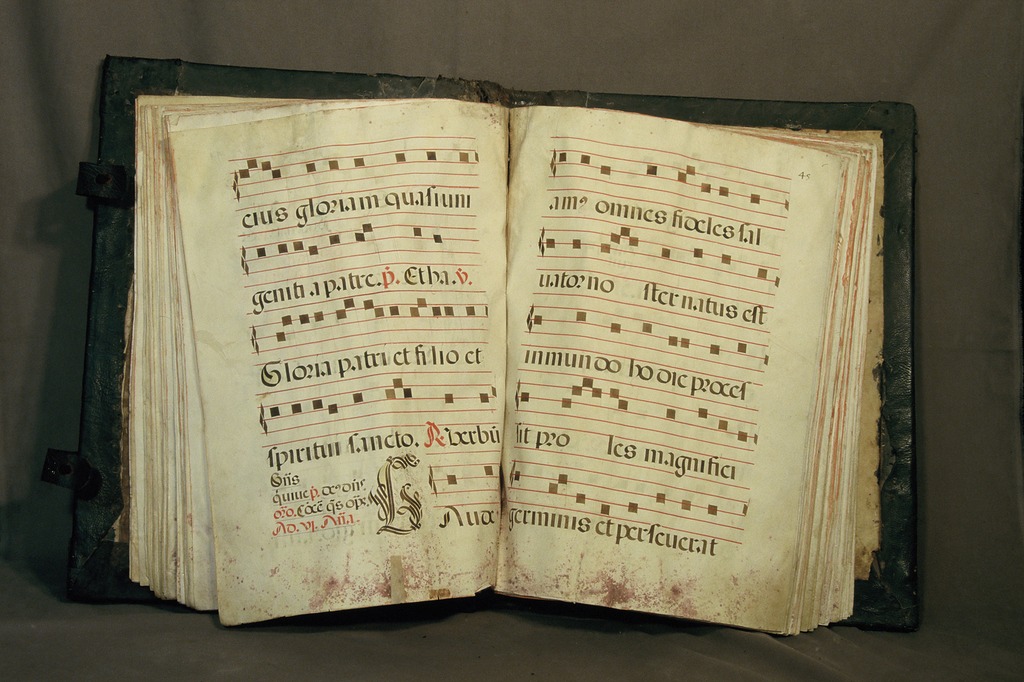 eius gloriam quasi uni
geniti a patre. p. Et ha. v.
Gloria patri et filio et
spiritui sancto. R. verbū
Ad. vi. Aña.
L Aude
45
am⁹ omnes fideles sal
uatorno ster natus est
in mundo ho die proces
sit pro les magnifici
germinis et perseuerat